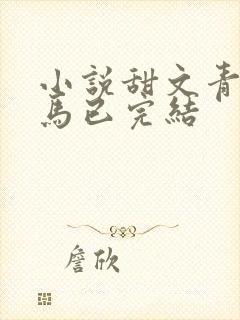 小說甜文青
馬已完結
詹欣